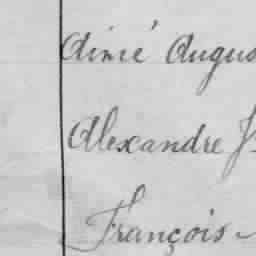 Aimé Augus
Alexandre J
François